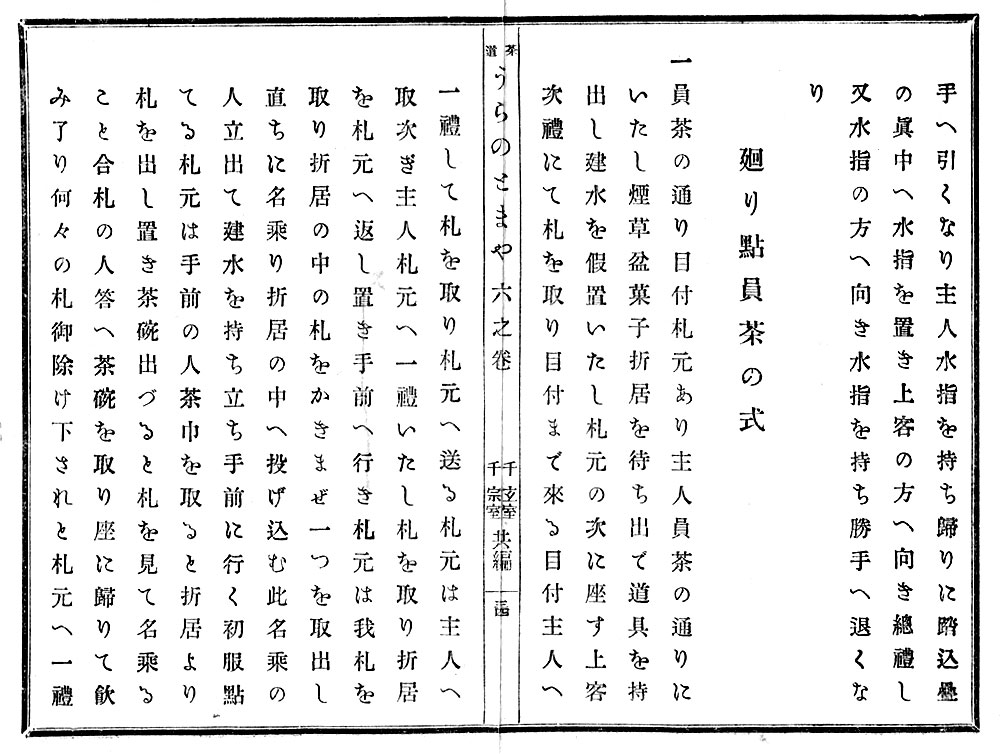 手へ引くなり主人水指を持ち歸りに踏込疊
の眞中へ水指を置き上客の方へ向き總禮し
又水指の方へ向き水指を持ち勝手へ退くな
り
廻り點員茶の式
一員茶の通り目付札元あり主人員茶の通りに
いたし煙草盆菓子折居を待ち出で道具を持
出し建水を假置いたし札元の次に座す上客
次禮にて札を取り目付まで來る目付主人へ
茶道
うらのとまや六之卷
千玄室
千宗室
共編
一禮して札を取り札元へ送る札元は主人へ
取次ぎ主人札元へ一禮いたし札を取り折居
を札元へ返し置き手前へ行き札元は我札を
取り折居の中の札をかきまぜ一つを取出し
直ちに名乘り折居の中へ投げ込む此名乘の
人立出て建水を持ち立ち手前に行く初服點
てる札元は手前の人茶巾を取ると折居より
札を出し置き茶碗出づると札を見て名乘る
こと合札の人答へ茶碗を取り座に歸りて飮
み了り何々の札御除け下されと札元へ一禮